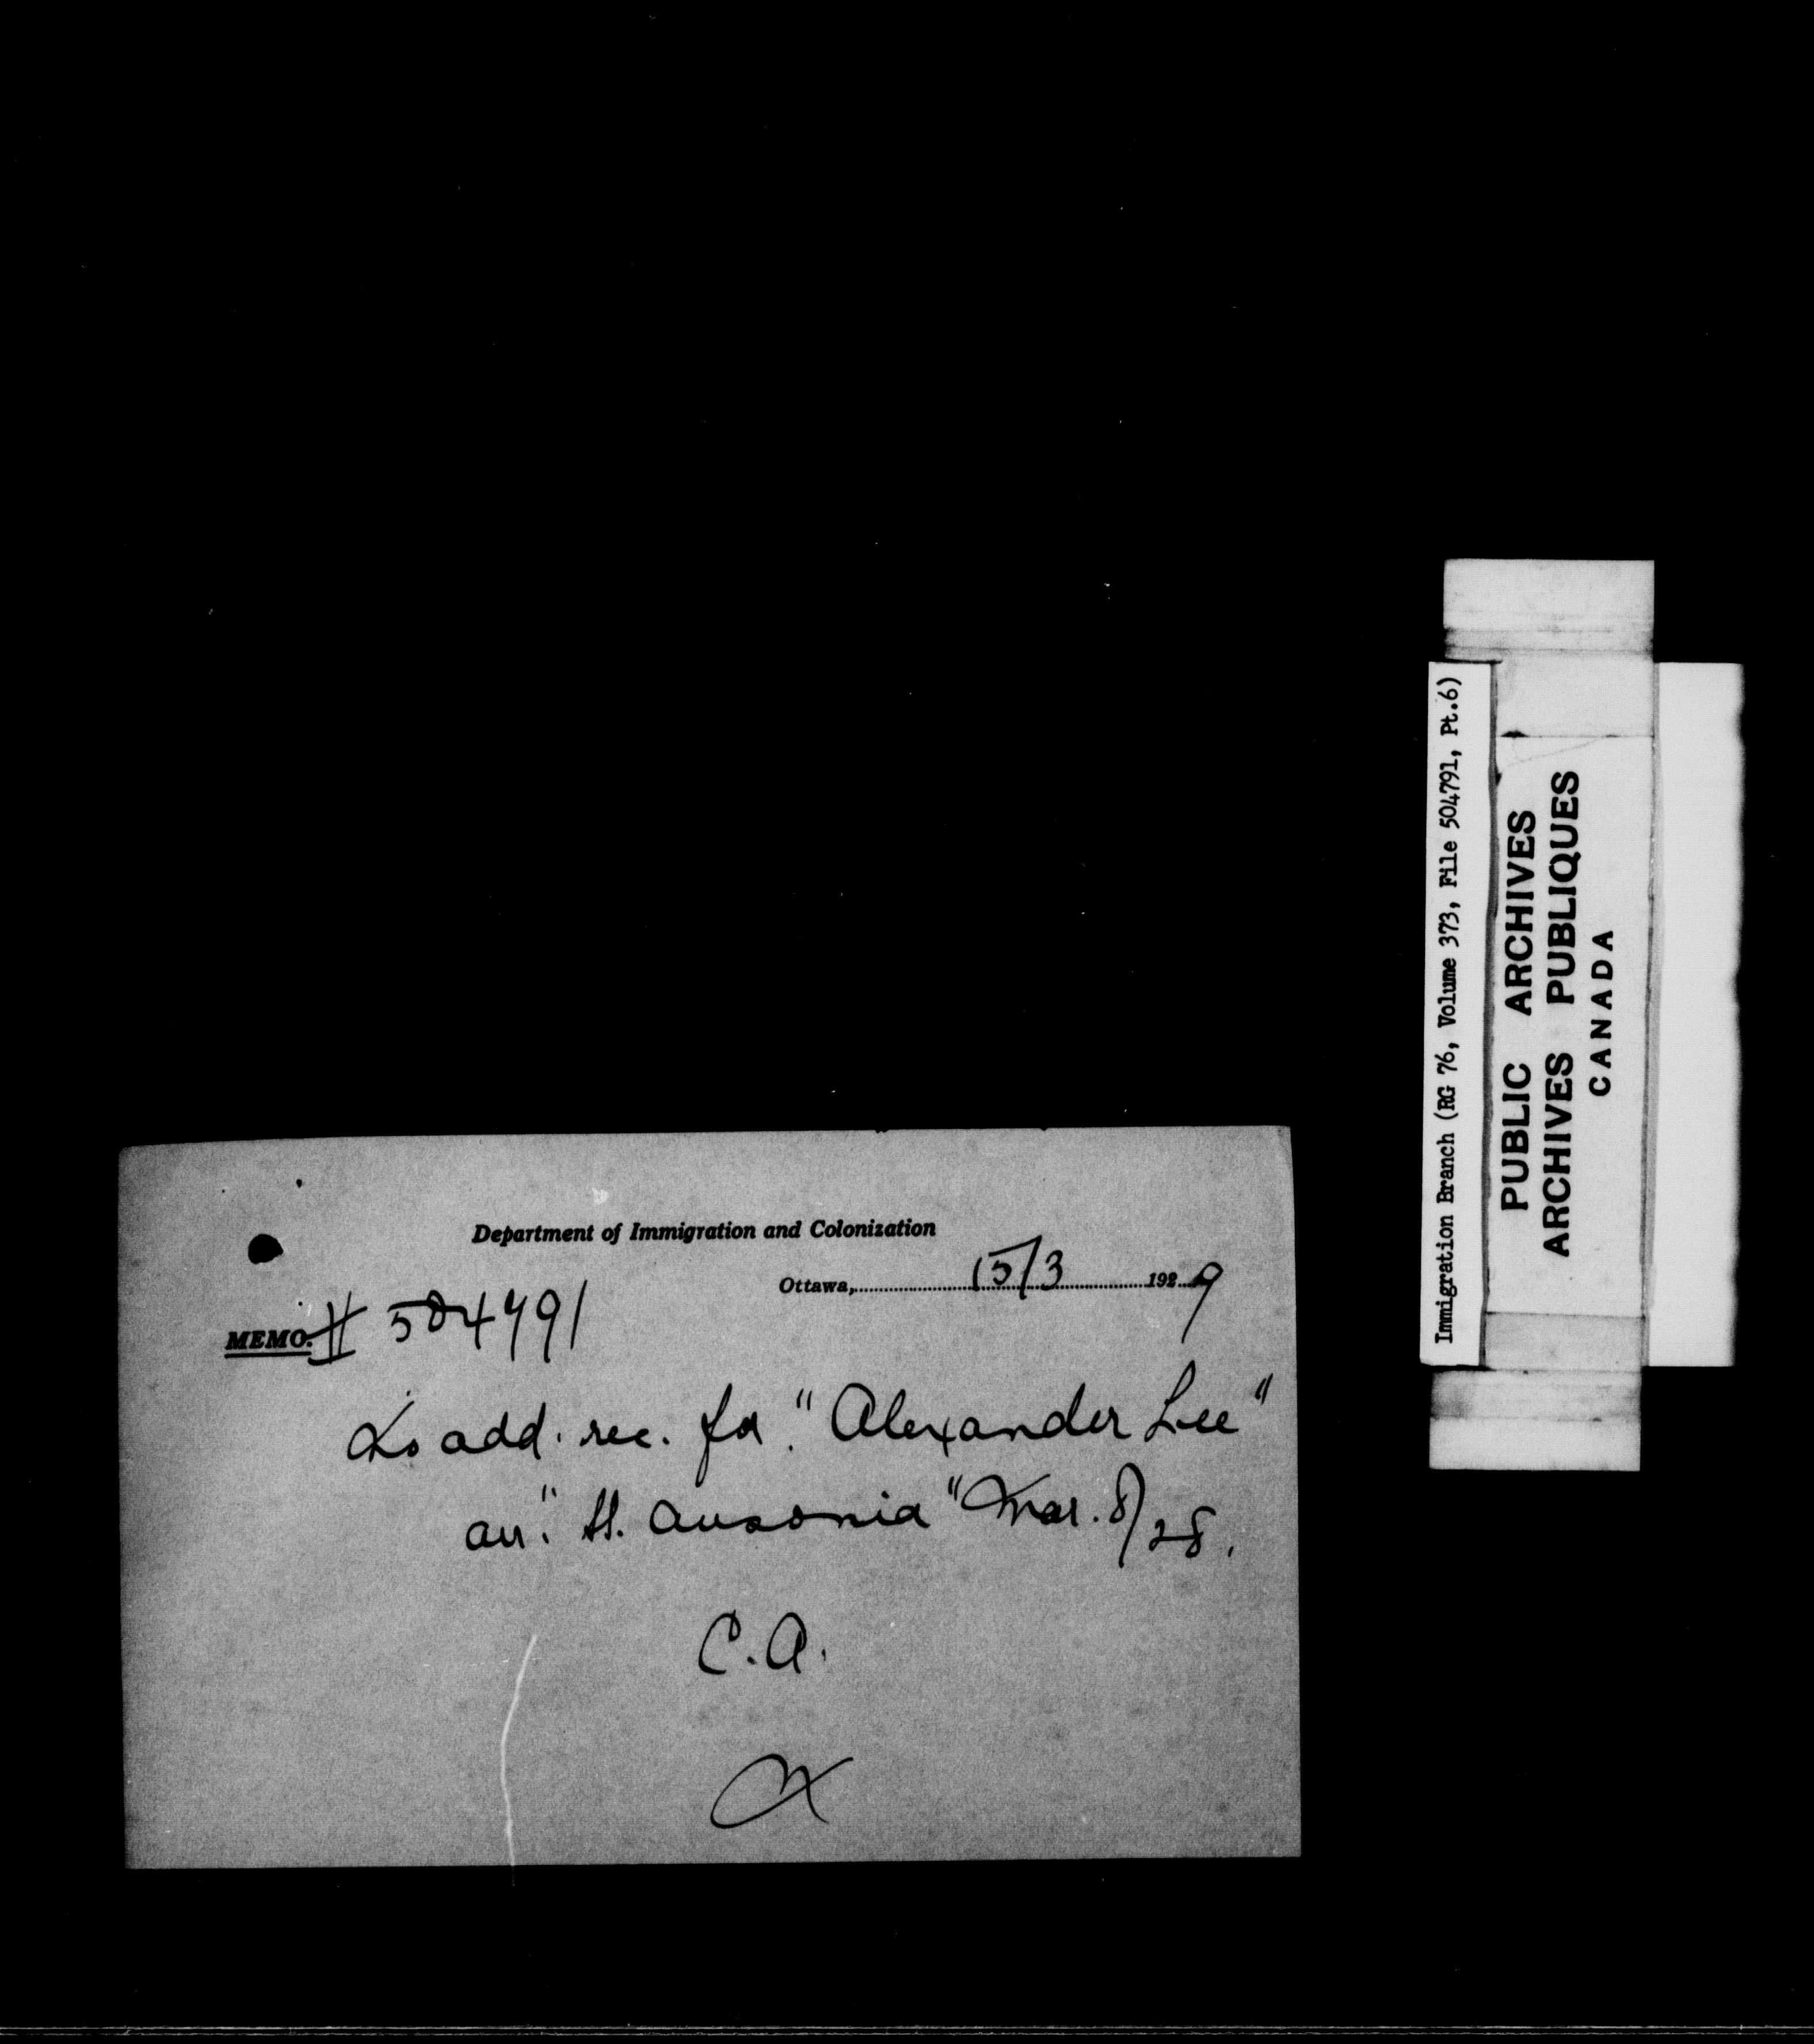 Department of Immigration and Colonization
Ottawa, 15/3 1929
MEMO. # 504791
No add. rec. for "Alexander Lee"
arr. "St. Ausonia" Mar. 8/28.
C.A.
Immigration Branch (RG 76, Volume 373, File 504791, Pt.6)
PUBLIC ARCHIVES
ARCHIVES PUBLIQUES
CANADA